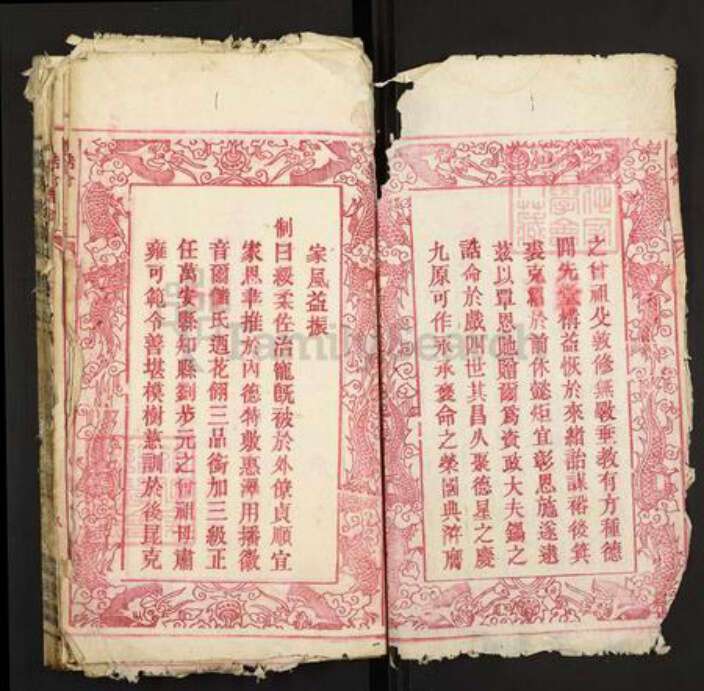 之曾祖父敦修無斁垂教有方種德
開先堂構益恢於來緒詒謀裕後箕
裘克紹於前休懿矩宜彰恩施遂逮
茲以覃恩貤贈爾爲資政大夫錫之
誥命於戲四世其昌久聚德星之慶
九原可作永承褒命之榮國典洊膺
家風益振
制曰綏柔佐治寵旣被於外僚貞順宜
家恩聿推於內德特敷惠澤用播徽
音爾氏迺花翎三品銜加三級正
任萬安縣知縣劉步元之曾祖母肅
雍可範令善堪模樹慈訓於後昆克
FamilySearch